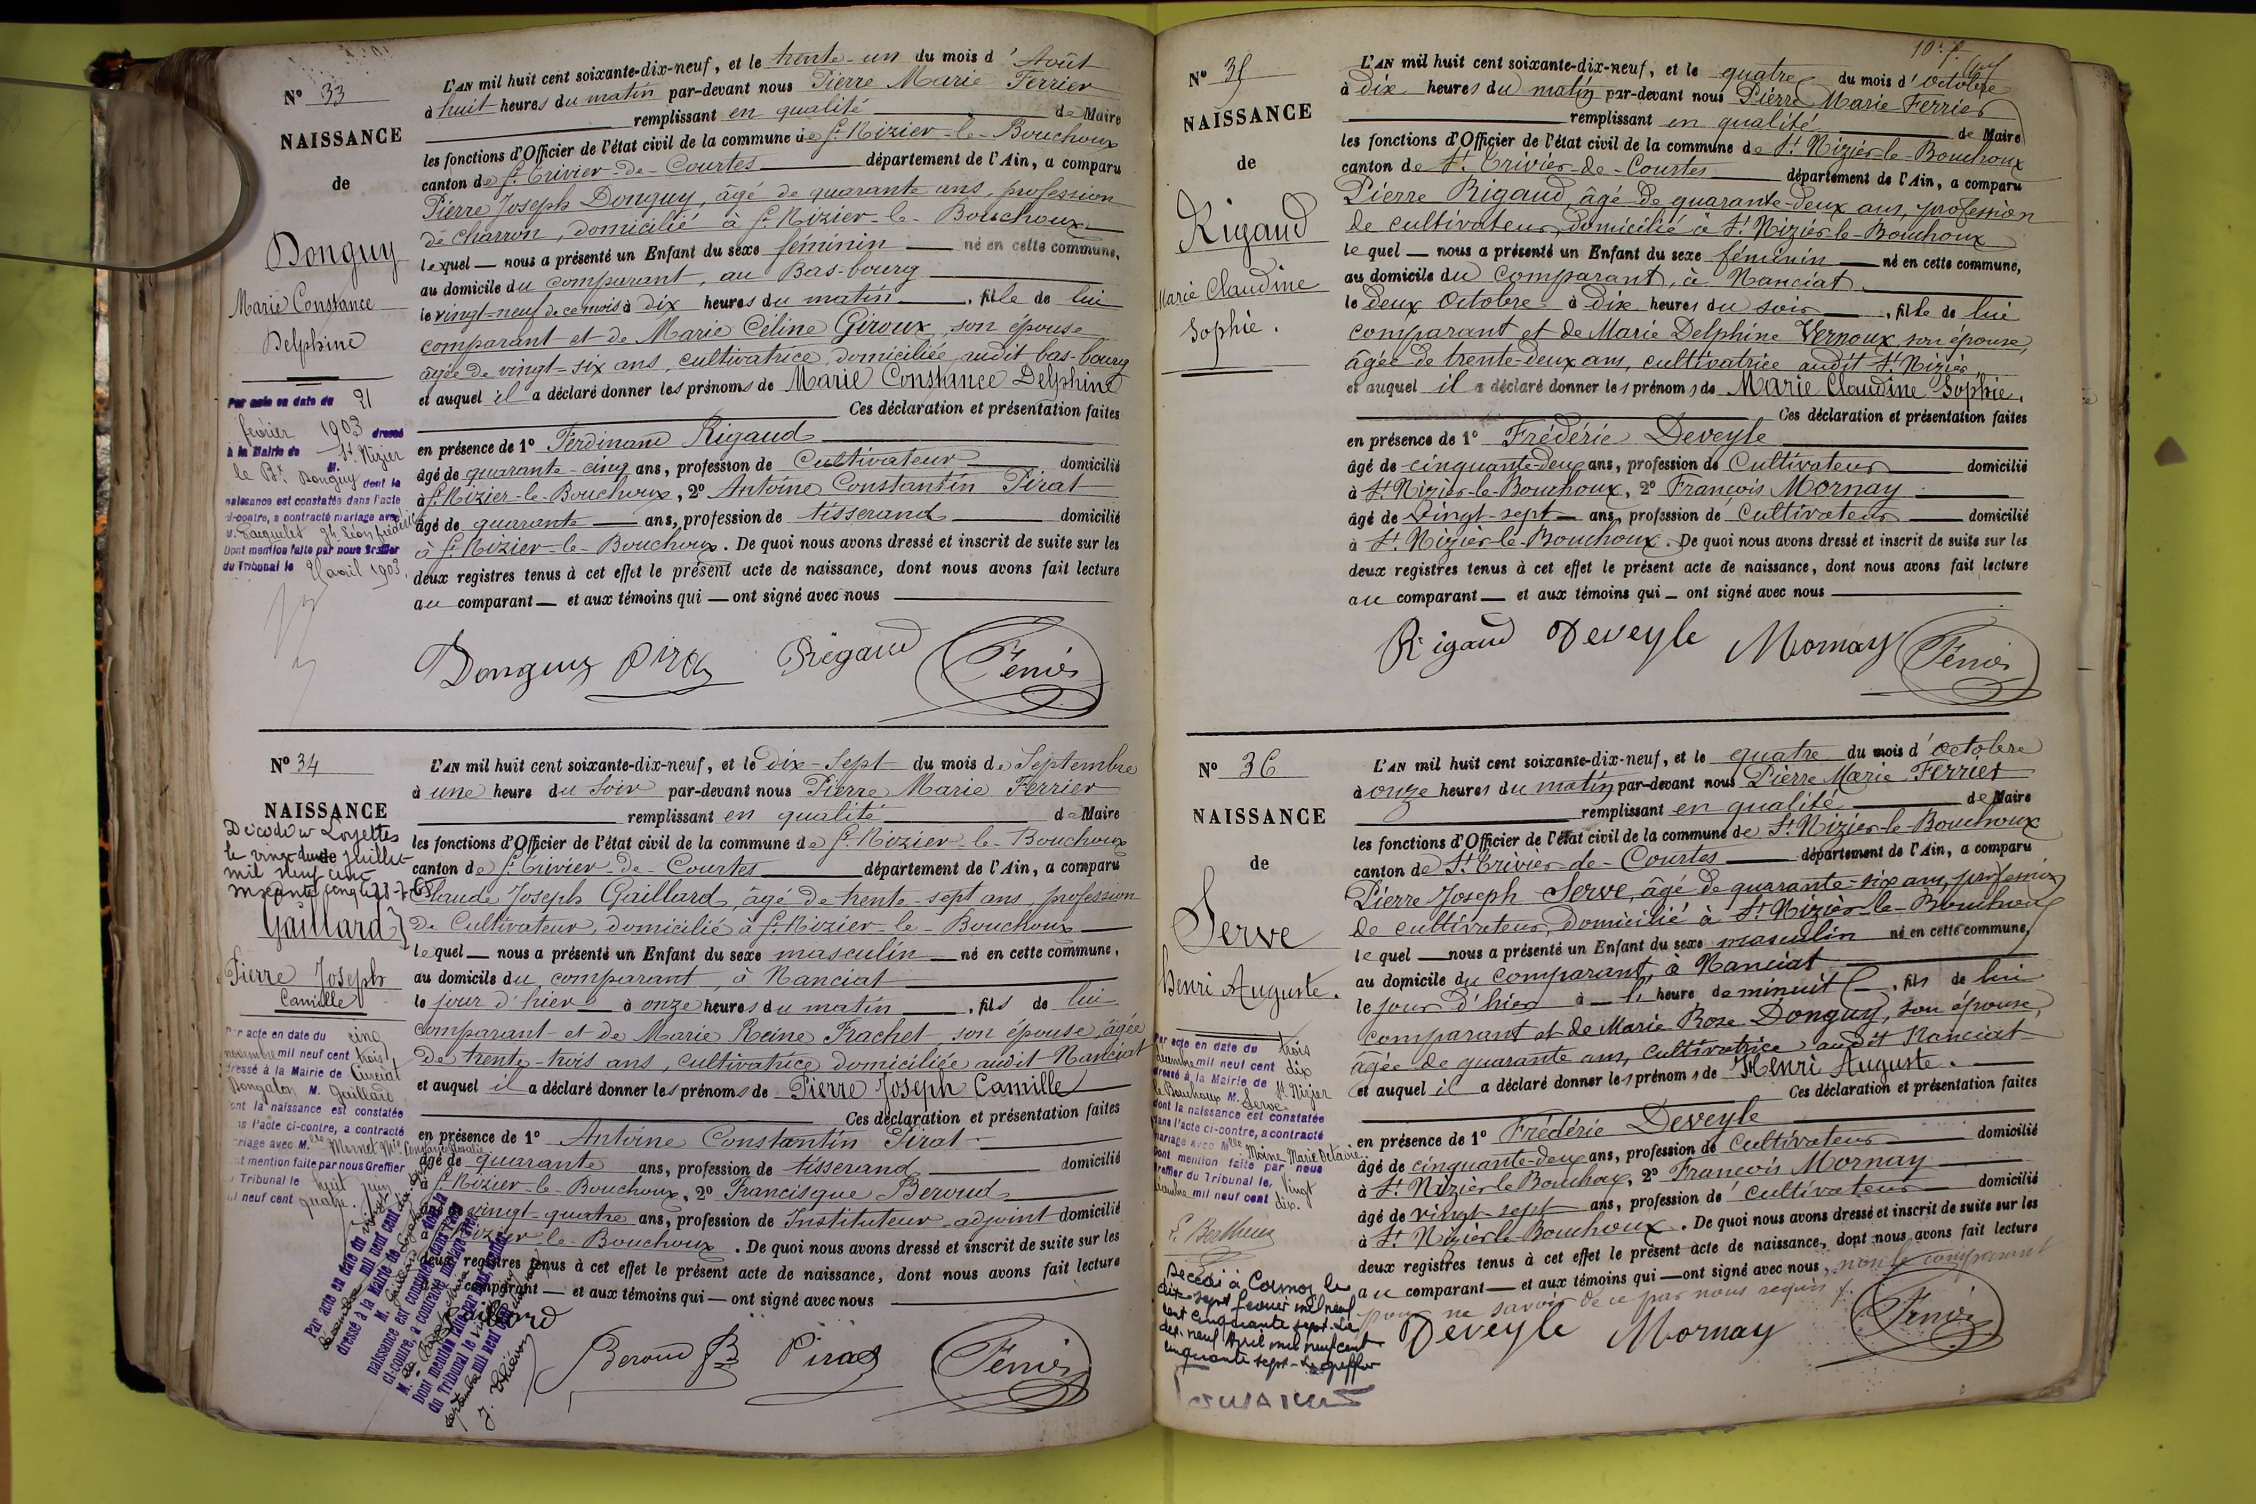 Nº 33
NAISSANCE
de
Donguy
Marie Constance
Delphine
Par acte en date du 21
février 1903 dressé
à la Mairie de St. Nizier
le Bx. M. Donguy dont la
naissance est constatée dans l'acte
ci-contre, a contracté mariage avec
Dont mention faite par nous Greffier
du Tribunal le avril 1903
L'AN mil huit cent soixante-dix-neuf, et le trente-un du mois d'Août
à huit heures du matin par-devant nous Pierre Marie Ferrier
remplissant en qualité de Maire
les fonctions d'Officier de l'état civil de la commune de St. Nizier-le-Bouchoux
canton de St. Trivier-de-Courtes département de l'Ain, a comparu
Pierre Joseph Donguy, âgé de quarante ans, profession
de charron, domicilié à St. Nizier-le-Bouchoux
lequel nous a présenté un Enfant du sexe féminin né en cette commune,
au domicile du comparant, au Bas-bourg
le vingt-neuf de ce mois à dix heures du matin, fille de lui
comparant et de Marie Céline Giroux, son épouse
âgée de vingt-six ans, cultivatrice, domiciliée audit bas-bourg
et auquel il a déclaré donner les prénoms de Marie Constance Delphine
Ces déclaration et présentation faites
en présence de 1º Ferdinand Rigaud
âgé de quarante-cinq ans, profession de Cultivateur domicilié
à St. Nizier-le-Bouchoux, 2º Antoine Constantin Pirat
âgé de quarante ans, profession de tisserand domicilié
à St. Nizier-le-Bouchoux. De quoi nous avons dressé et inscrit de suite sur les
deux registres tenus à cet effet le présent acte de naissance, dont nous avons fait lecture
au comparant et aux témoins qui ont signé avec nous
Donguy Pirat Rigaud Ferrier
Nº 34
NAISSANCE
Décédé à Loyettes
le vingt deux Juillet
mil neuf cent
Gaillard
Pierre Joseph
Camille
Par acte en date du cinq
novembre mil neuf cent trois,
dressé à la Mairie de Curciat
Dongalon M. Gaillard
dont la naissance est constatée
dans l'acte ci-contre, a contracté
mariage avec Mlle Mornet
Dont mention faite par nous Greffier
du Tribunal le huit juin
mil neuf cent quatre.
L'AN mil huit cent soixante-dix-neuf, et le dix-sept du mois de Septembre
à une heure du soir par-devant nous Pierre Marie Ferrier
remplissant en qualité de Maire
les fonctions d'Officier de l'état civil de la commune de St. Nizier-le-Bouchoux
canton de St. Trivier-de-Courtes département de l'Ain, a comparu
Claude Joseph Gaillard, âgé de trente-sept ans, profession
de Cultivateur, domicilié à St. Nizier-le-Bouchoux
lequel nous a présenté un Enfant du sexe masculin né en cette commune,
au domicile du comparant, à Nanciat
le jour d'hier à onze heures du matin, fils de lui
comparant et de Marie Reine Frachet, son épouse, âgée
de trente-trois ans, cultivatrice domiciliée audit Nanciat
et auquel il a déclaré donner les prénoms de Pierre Joseph Camille
Ces déclaration et présentation faites
en présence de 1º Antoine Constantin Pirat
âgé de quarante ans, profession de tisserand domicilié
à St. Nizier-le-Bouchoux, 2º Francisque Beroud
vingt-quatre ans, profession de Instituteur adjoint domicilié
Nizier-le-Bouchoux. De quoi nous avons dressé et inscrit de suite sur les
deux registres tenus à cet effet le présent acte de naissance, dont nous avons fait lecture
comparant et aux témoins qui ont signé avec nous
Par acte en date du vingt
mil neuf cent
dressé à la Mairie de
M. Gaillard dont la
naissance est constatée dans l'acte
ci-contre, a contracté mariage avec
Dont mention faite par nous Greffier
du Tribunal le
mil neuf cent
Gaillard
Beroud Pirat Ferrier
Nº 35
NAISSANCE
de
Rigaud
Marie Claudine
Sophie.
L'AN mil huit cent soixante-dix-neuf, et le quatre du mois d'octobre
à dix heures du matin par-devant nous Pierre Marie Ferrier
remplissant en qualité de Maire
les fonctions d'Officier de l'état civil de la commune de St. Nizier-le-Bouchoux
canton de St. Trivier-de-Courtes département de l'Ain, a comparu
Pierre Rigaud, âgé de quarante-deux ans, profession
de cultivateur, domicilié à St. Nizier-le-Bouchoux
lequel nous a présenté un Enfant du sexe féminin né en cette commune,
au domicile du comparant, à Nanciat.
le deux octobre à dix heures du soir, fille de lui
comparant et de Marie Delphine Vernoux son épouse,
âgée de trente-deux ans, cultivatrice audit St. Nizier
et auquel il a déclaré donner les prénoms de Marie Claudine Sophie.
Ces déclaration et présentation faites
en présence de 1º Frédéric Deveyle
âgé de cinquante-deux ans, profession de Cultivateur domicilié
à St. Nizier-le-Bouchoux, 2º François Mornay
âgé de Vingt-sept ans, profession de Cultivateur domicilié
à St. Nizier-le-Bouchoux. De quoi nous avons dressé et inscrit de suite sur les
deux registres tenus à cet effet le présent acte de naissance, dont nous avons fait lecture
au comparant et aux témoins qui ont signé avec nous
Rigaud Deveyle Mornay Ferrier
Nº 36
NAISSANCE
de
Serve
Henri Auguste.
Par acte en date du trois
décembre mil neuf cent dix
dressé à la Mairie de St. Nizier
le Bouchoux M. Serve
dont la naissance est constatée
dans l'acte ci-contre, a contracté
mariage avec Mlle Moine Marie Octavie
Dont mention faite par nous
Greffier du Tribunal le, vingt
décembre mil neuf cent dix.
Décédé à Cormoz le
dix sept février mil neuf
cent cinquante sept. Le
dix neuf Avril mil neuf cent
cinquante sept. Le greffier
L'AN mil huit cent soixante-dix-neuf, et le quatre du mois d'octobre
à onze heures du matin par-devant nous Pierre Marie Ferrier
remplissant en qualité de Maire
les fonctions d'Officier de l'état civil de la commune de St. Nizier-le-Bouchoux
canton de St. Trivier-de-Courtes département de l'Ain, a comparu
Pierre Joseph Serve, âgé de quarante-six ans, profession
de cultivateur, domicilié à St. Nizier-le-Bouchoux
lequel nous a présenté un Enfant du sexe masculin né en cette commune,
au domicile du comparant, à Nanciat
le jour d'hier à l' heure de minuit, fils de lui
comparant et de Marie Rose Donguy, son épouse,
âgée de quarante ans, cultivatrice audit Nanciat
et auquel il a déclaré donner les prénoms de Henri Auguste.
Ces déclaration et présentation faites
en présence de 1º Frédéric Deveyle
âgé de cinquante-deux ans, profession de Cultivateur domicilié
à St. Nizier le Bouchoux, 2º François Mornay
âgé de vingt-sept ans, profession de cultivateur domicilié
à St. Nizier le Bouchoux. De quoi nous avons dressé et inscrit de suite sur les
deux registres tenus à cet effet le présent acte de naissance, dont nous avons fait lecture
au comparant et aux témoins qui ont signé avec nous, non le comparant
pour ne savoir de ce par nous requis.
Deveyle Mornay Ferrier